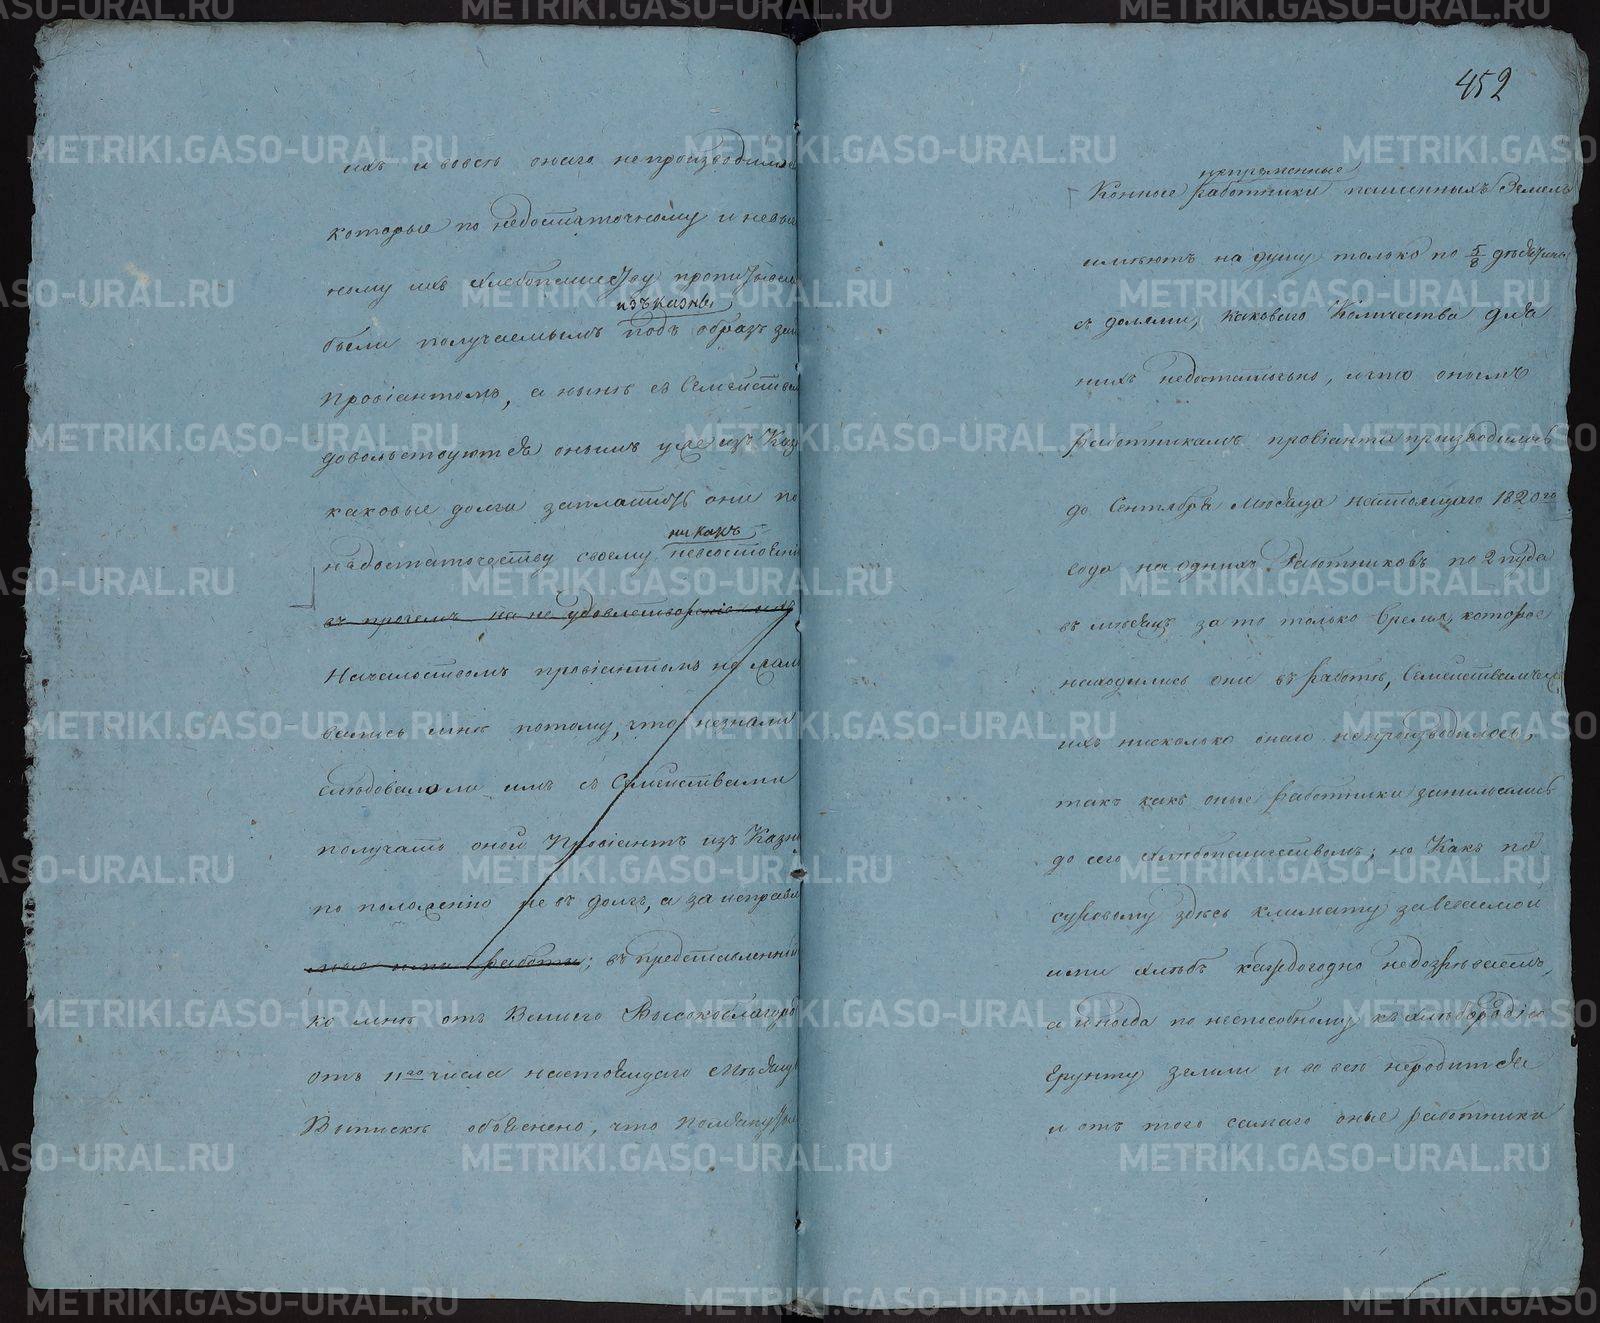 ихъ и вовсѣ онаго непроизводилось
которые по недостаточному и
ному ихъ хлебопашеству
изъ казны
были получаемымъ подъ образъ
провіантомъ, а нынѣ съ Семействами
довольствуются онымъ уже изъ Каз
каковые долги заплатить они по
никакъ
недостаточеству своему невсостояніи
въ протчемъ на не удовлетвореніе ихъ
Началствомъ провіантомъ не жало
вались мнѣ потому, что незнали
слѣдовалоли имъ съ Семействами
получать оной Провіантъ изъ Казны
по положенію не въ долгъ, а за исправл
работы; въ представленной
ко мнѣ отъ Вашего Высокоблагород
отъ 11го числа настоящаго Мѣсяца
Выпискѣ объяснено, что
452
непременные
Конные работники пашенныхъ Земель
имѣютъ на душу только по 5/8 десятины
съ долями, каковаго Количества для
нихъ недостаточно, и что онымъ
работникамъ провіанта производилось
до Сентября Мѣсяца настоящаго 1820го
года на однихъ Работниковъ по 2 пуда
въ мѣсяцъ за то только Время, которое
находились они въ работѣ, Семействамъ
ихъ нисколько онаго непроизводилось,
такъ какъ оные работники занимались
до сего хлебопашествомъ; но Какъ по
суровому здѣсь климату засеваемой
ими хлѣбъ каждогодно недозрѣваетъ,
а иногда по неспособному къ хлѣбородію
Грунту земли и вовсе неродится
и отъ того самаго оные работники